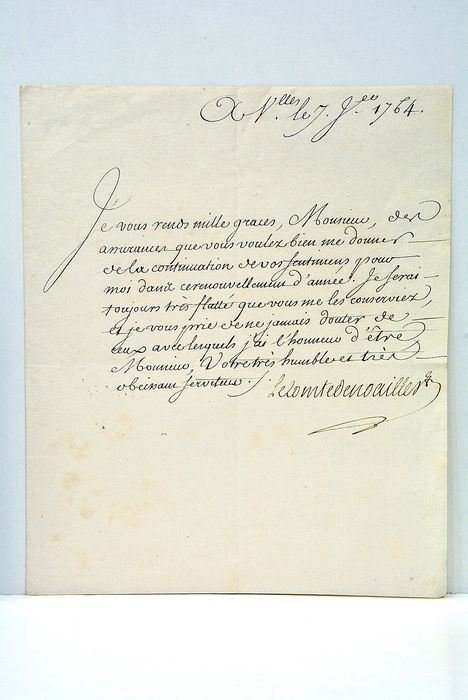 A V.lles le 7. J.er 1764.
Je vous rends mille graces, Monsieur, des
assurances que vous voulez bien me donner
de la continuation de vos sentimens pour
moi dans ce renouvellement d'année. Je serai
toujours très flatté que vous me les conserviez,
et je vous prie de ne jamais douter de
ceux avec lesquels j'ai l'honneur d'être,
Monsieur, Votre très humble et très
obeissant serviteur ./.
Le comte de noailles